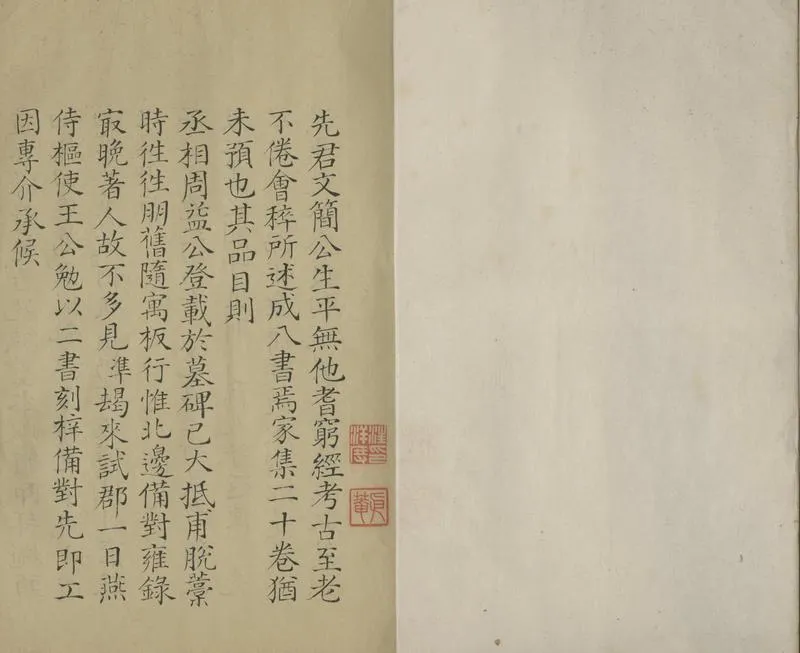 先君文簡公生平無他耆窮經考古至老
不倦會稡所述成八書焉家集二十卷猶
未預也其品目則
丞相周益公登載於墓碑已大抵甫脫藁
時徃徃朋舊隨寓板行惟北邊備對雍錄
㝡晚著人故不多見準朅來試郡一日燕
侍樞使王公勉以二書刻梓備對先即工
因專介承候